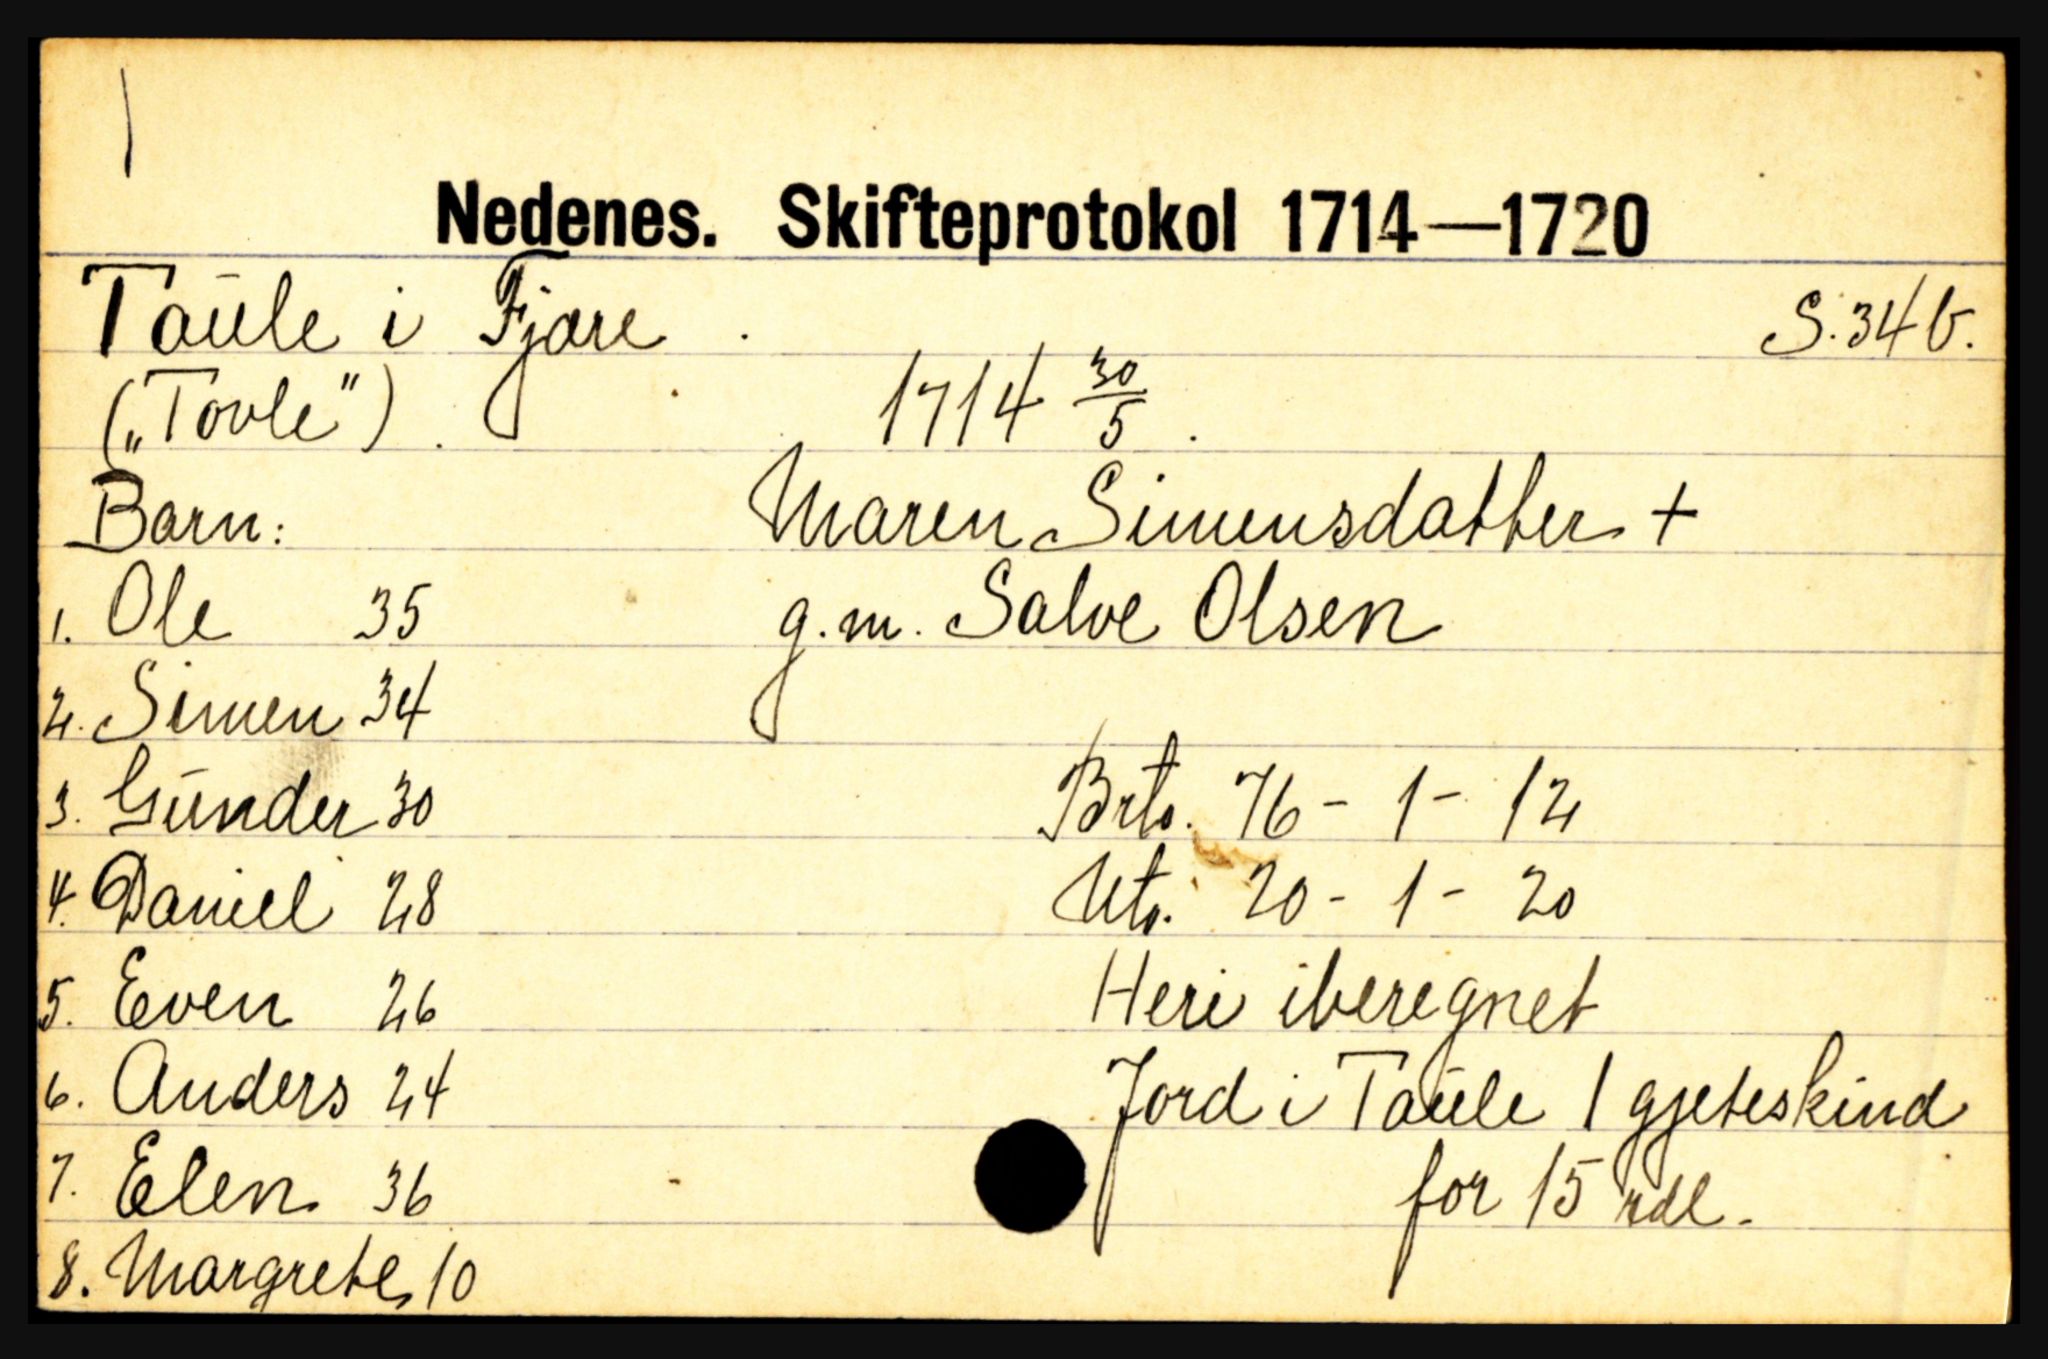 Nedenes. Skifteprotokol 1714—1720
Taüle i Fjære . S. 34 b.
(„Tovle") . 1714 30/5 .
Barn: Maren Simensdatter +
1. Ole 35 g.m. Salve Olsen
2. Simen 34
3. Günder 30 Brto. 76 - 1 - 12
4. Daniel 28 Nto. 20 - 1 - 20
5. Even 26 Heri iberegnet
6. Anders 24 Jord i Taüle 1 gjeteskind
7. Elen 36 for 15 rdl.
8. Margrete 10